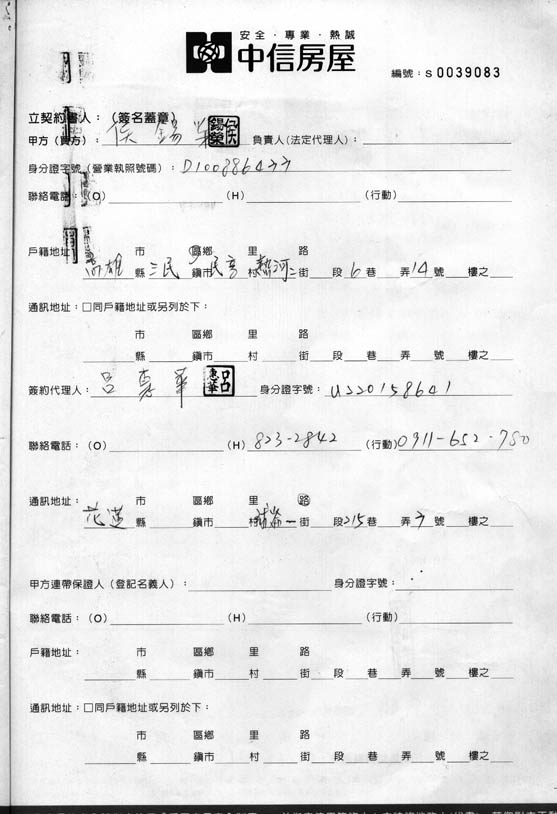 安全．專業．熱誠
中信房屋
編號：S 0039083
立契約書人：（簽名蓋章）
甲方（賣方）：侯錫榮 負責人(法定代理人)：
身分證字號（營業執照號碼）：
聯絡電話：（O） （H） （行動）
市 區鄉 里 路
戶籍地址：高雄 縣 三民 鎮市 村 街 段 6 巷 弄 14 號 樓之
通訊地址：□同戶籍地址或另列於下：
市 區鄉 里 路
縣 鎮市 村 街 段 巷 弄 號 樓之
簽約代理人：呂惠華 身分證字號：U220158641
聯絡電話：（O） （H）823-2842 （行動）0911-652-780
通訊地址： 市 區鄉 里 路
花蓮 縣 鎮市 村 一 街 段 215 巷 弄 號 樓之
甲方連帶保證人（登記名義人）： 身分證字號：
聯絡電話：（O） （H） （行動）
戶籍地址： 市 區鄉 里 路
縣 鎮市 村 街 段 巷 弄 號 樓之
通訊地址：□同戶籍地址或另列於下：
市 區鄉 里 路
縣 鎮市 村 街 段 巷 弄 號 樓之